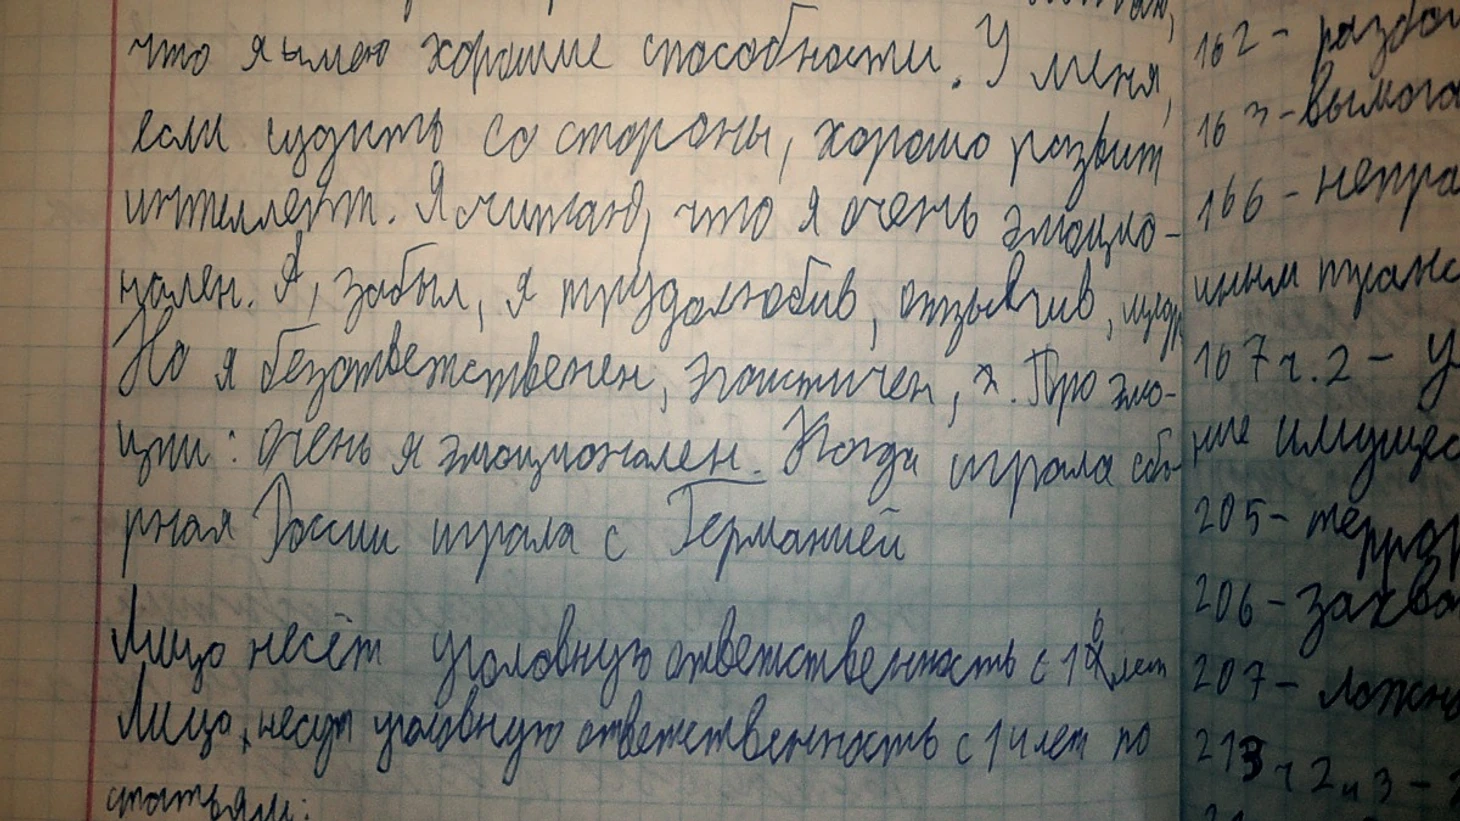 что я имею хорошие способности. У меня,
если судить со стороны, хорошо развит
интеллект. Я считаю, что я очень эмоцио-
нален. А, забыл, я трудолюбив, отзывчив,
Но я безответственен, эгоистичен, я. Про эмо-
ции: очень я эмоционален. Когда играла сбо-
рная России играла с Германией
Лицо несёт уголовную ответственность с 16 лет
Лицо, несут уголовную ответственность с 14 лет по
статьям:
162 - разбо
163 - вымога
166 - непра
иным транс
167 ч. 2 - у
ние имущес
205 - террор
206 - захва
207 - ложно
213 ч 2 и 3 -